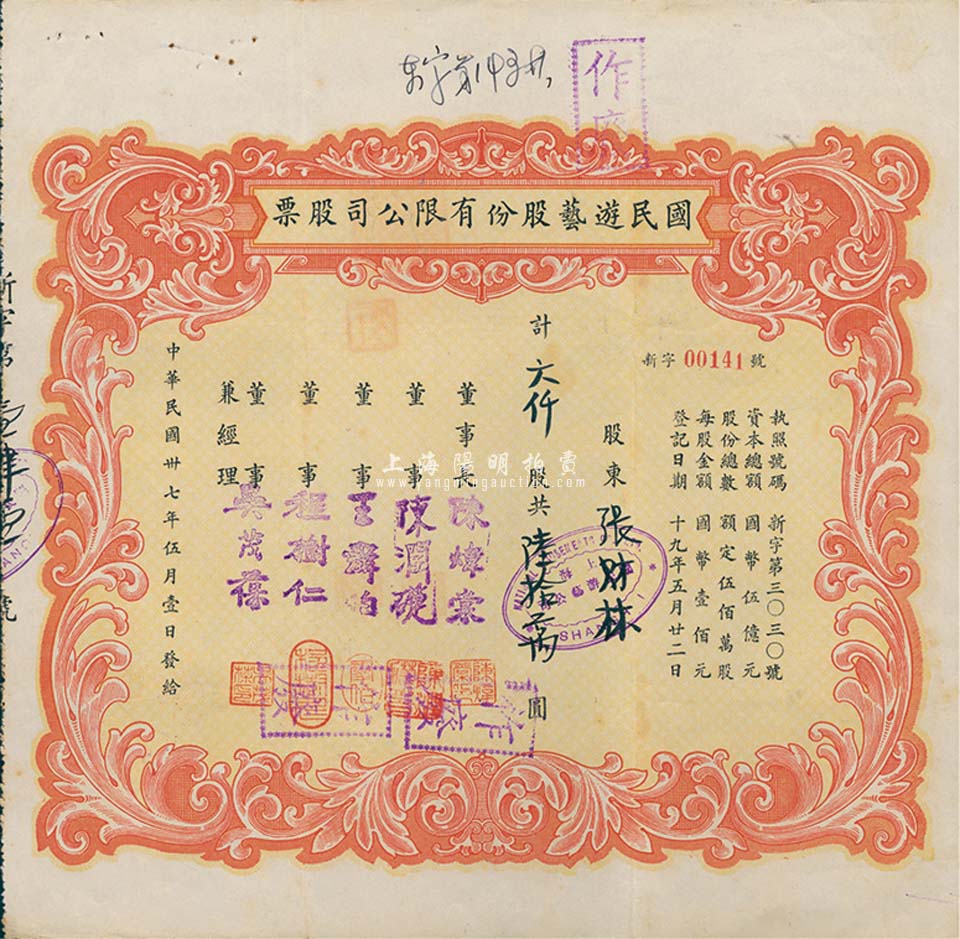 作廢
國民遊藝股份有限公司股票
新字 00141 號
執照號碼 新字第三〇三三〇號
資本總額 國幣伍億元
股份總數 額定伍佰萬股
每股金額 國幣壹佰元
登記日期 十九年五月廿二日
股東 張財林
計 六仟 股共 陸拾萬 圓
董事長 陳煒棠
董事 陳潤礎
董事
董事 程樹仁
董事兼經理 吳茂葆
中華民國卅七年伍月壹日發給
作廢
作廢
新字第
號
上海陽明拍賣
www.yangmingauction.com